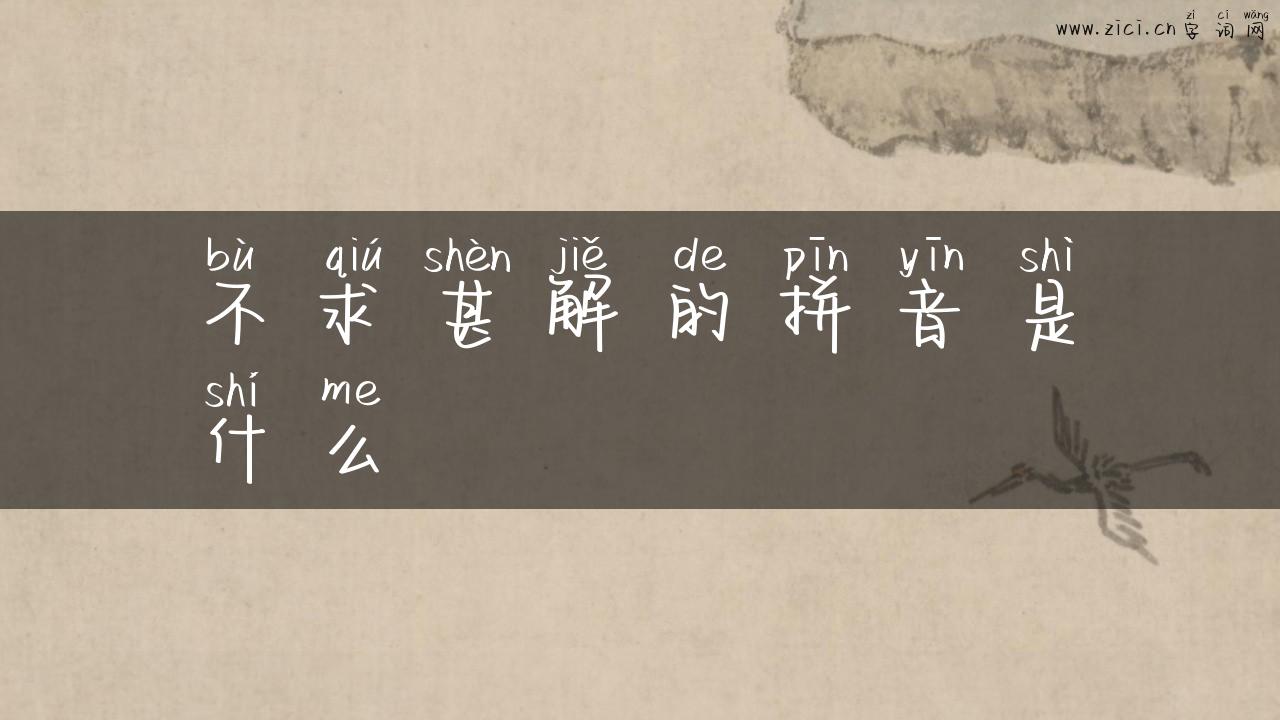 zì cí wǎng
www.zici.cn 字词网
bù qiú shèn jiě de pīn yīn shì
不求甚解的拼音是
shí me
什么